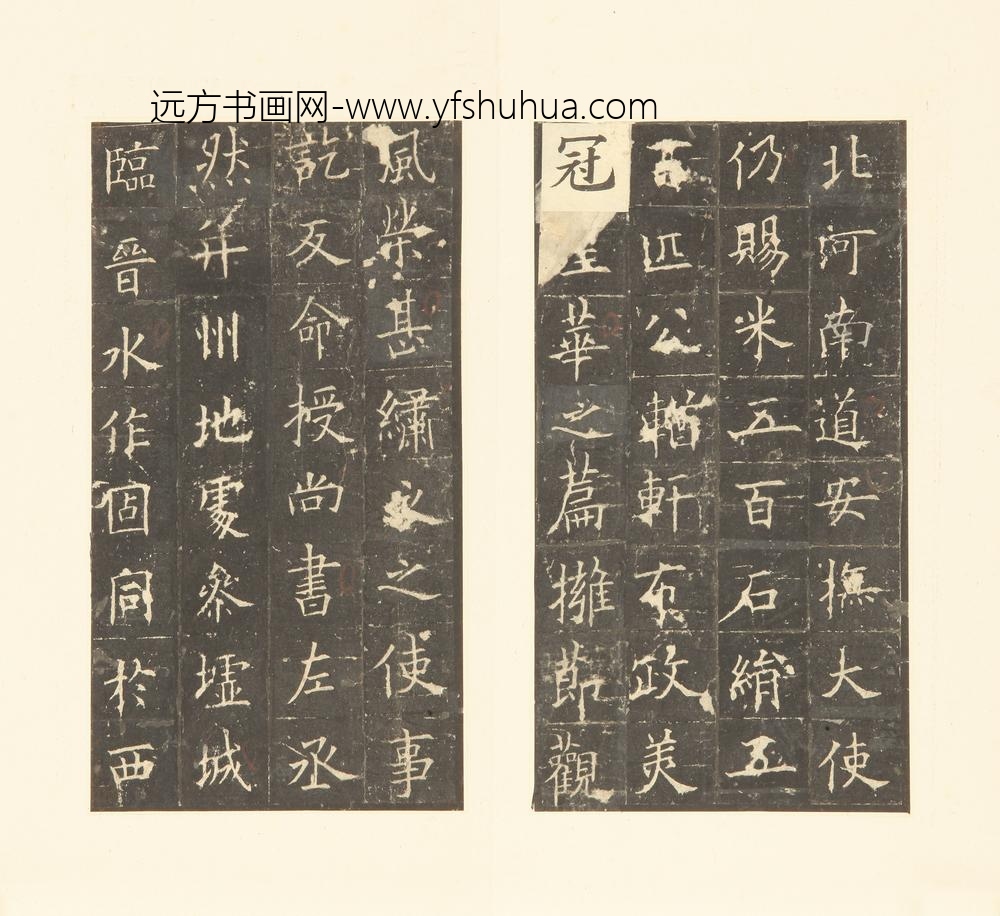 远方书画网-www.yfshuhua.com
北河南道安撫大使
仍賜米五百石絹五
百匹公輶軒布政美
冠皇華之篇擁節觀
風榮甚繡衣之使事
訖反命授尚書左丞
然并州地處參墟城
臨晉水作固同於西